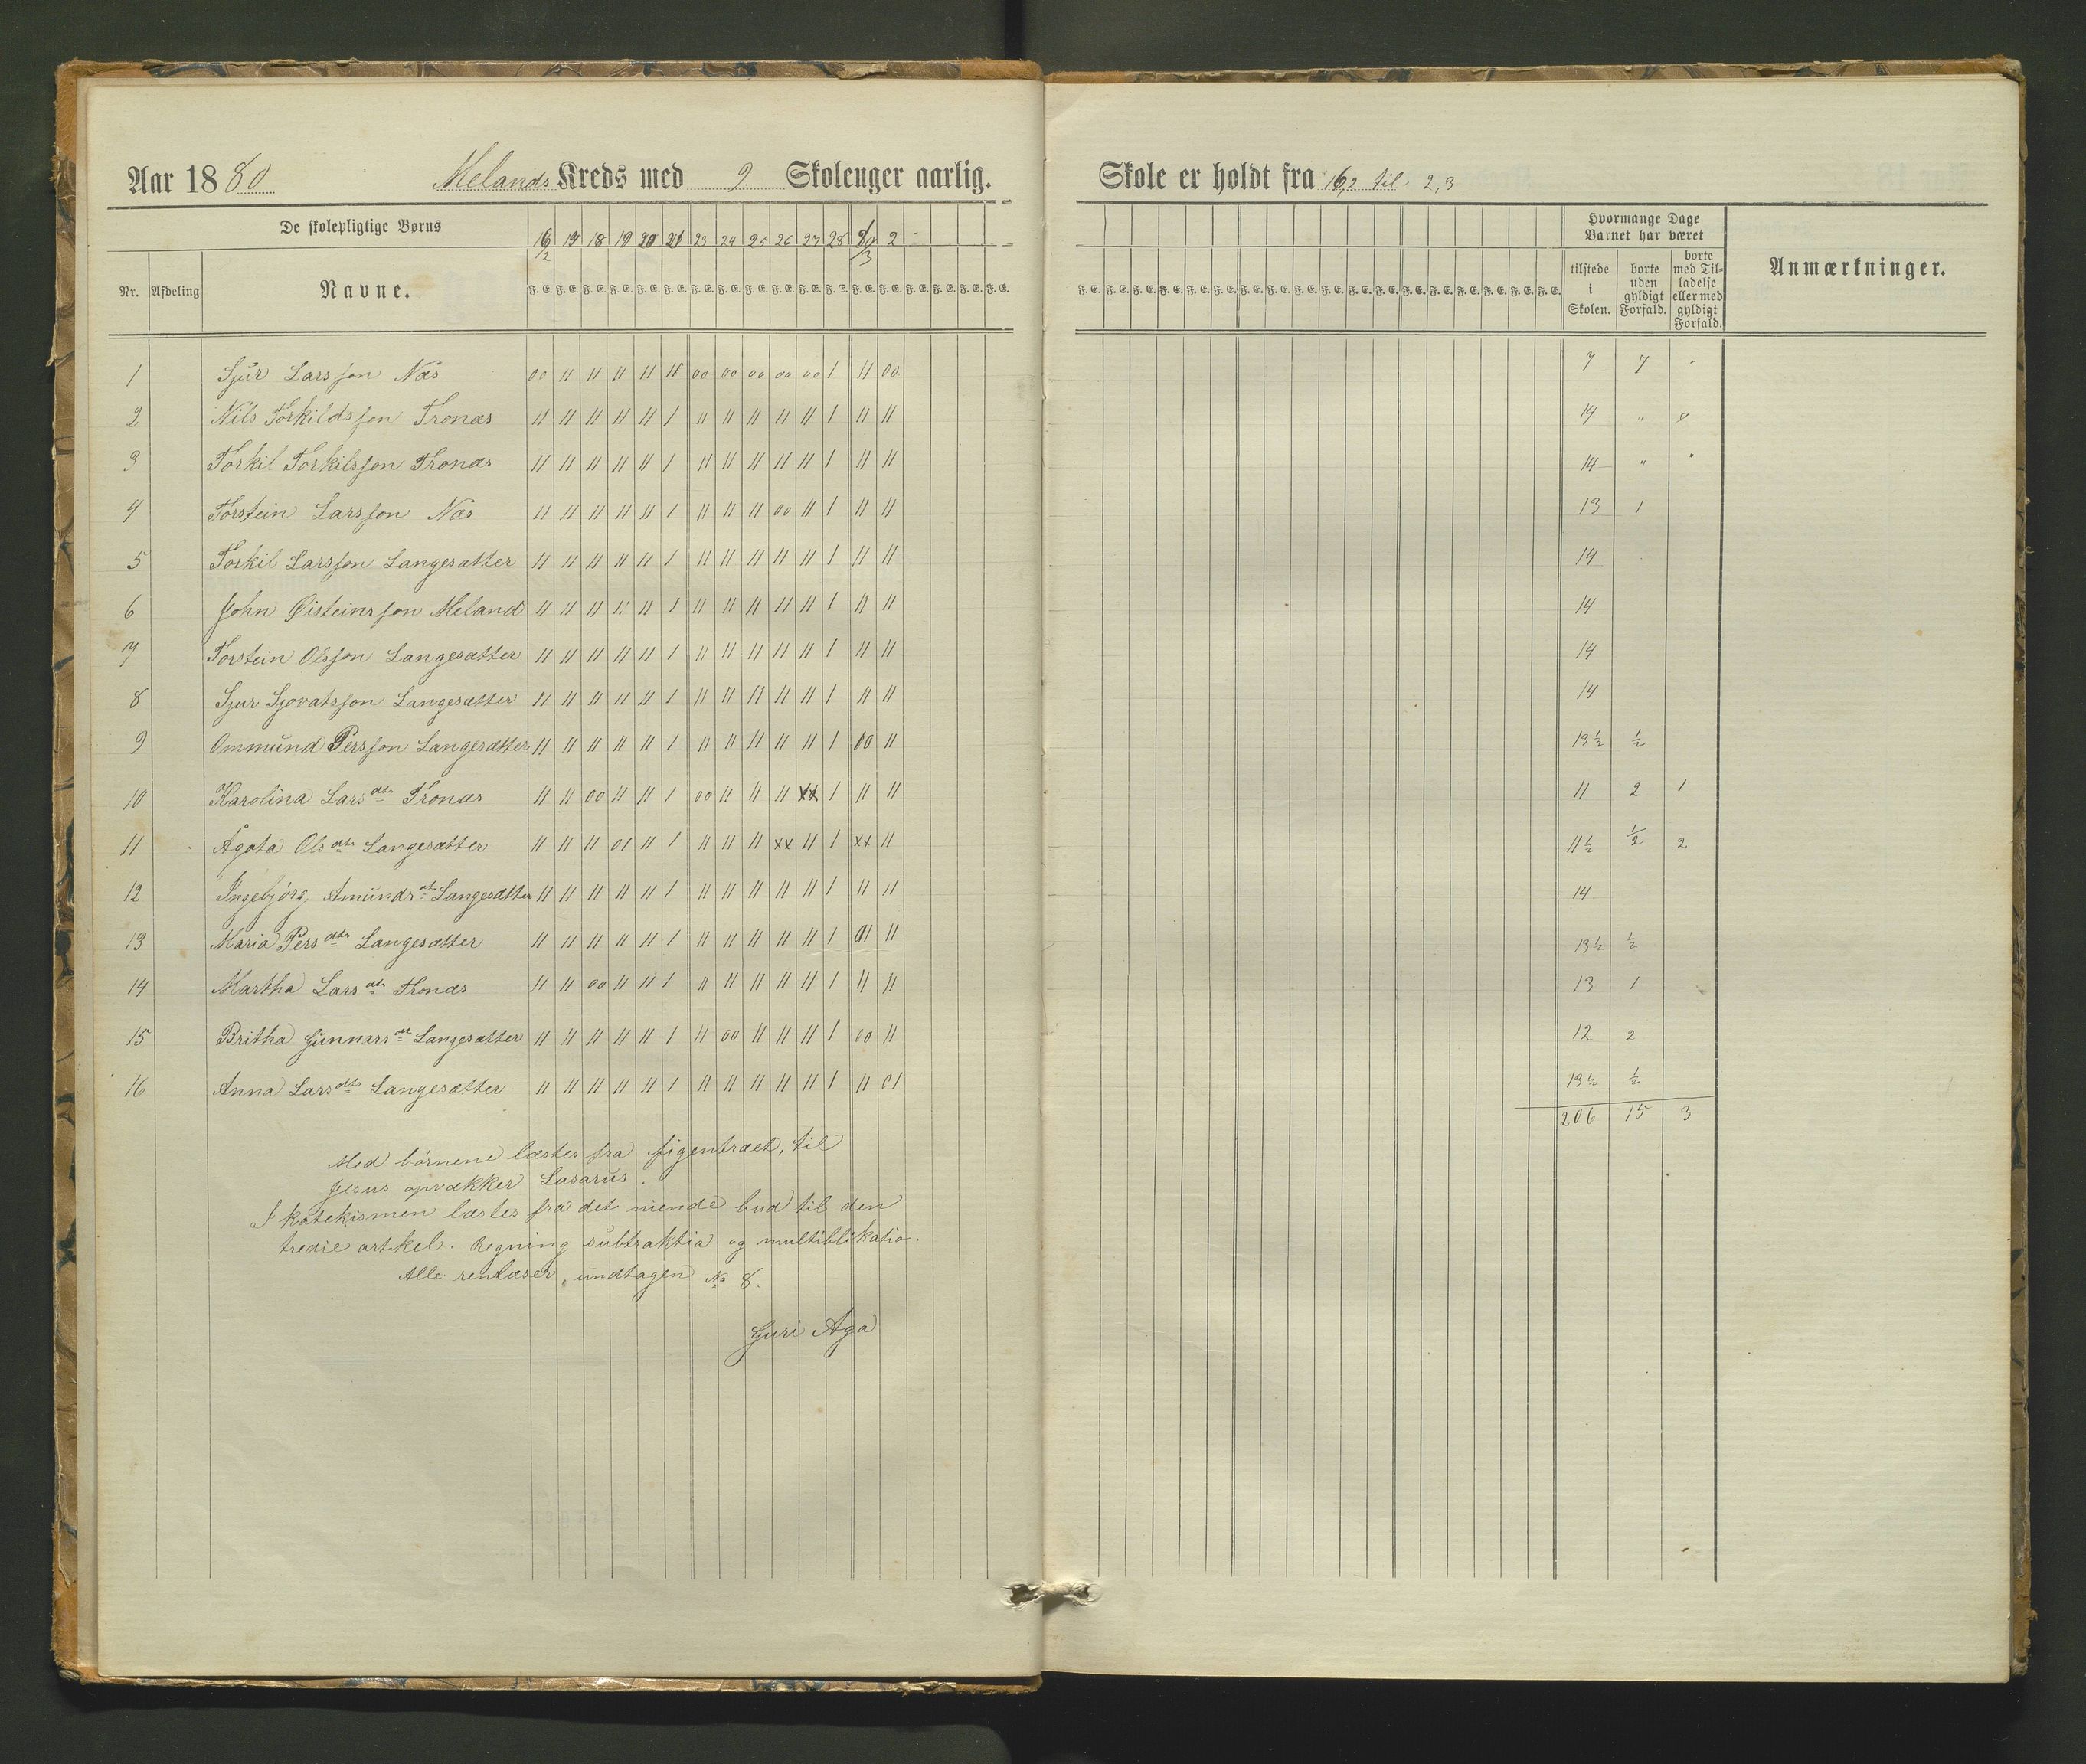 Aar 1880 Melands Kreds med 9. Skoleuger aarlig.
De skolepligtige Børns 16/2 17 18 19 20 21 23 24 25 26 27 28 2
Nr. Afdeling Navne. F. E. F. E. F. E. F. E. F. E. F. E. F. E. F. E. F. E. F. E. F. E. F. E. F. E. F. E. F. E. F. E. F. E. F. E.
1 Sjur Larsson Næs 00 11 11 11 11 11 00 00 00 00 00 1 11 00
2 Nils Torkildsson Tronæs 11 11 11 11 11 1 11 11 11 11 11 1 11 11
3 Torkil Torkilsson Tronæs 11 11 11 11 11 1 11 11 11 11 11 1 11 11
4 Torstein Larsson Næs 11 11 11 11 11 1 11 11 11 00 11 1 11 11
5 Torkil Larsson Langesætter 11 11 11 11 11 1 11 11 11 11 11 1 11 11
6 John Øisteinsson Meland 11 11 11 11 11 1 11 11 11 11 11 1 11 11
7 Torstein Olsson Langesætter 11 11 11 11 11 1 11 11 11 11 11 1 11 11
8 Sjur Sjovatsson Langesætter 11 11 11 11 11 1 11 11 11 11 11 1 11 11
9 Ommund Persson Langesætter 11 11 11 11 11 1 11 11 11 11 11 1 00 11
10 Karolina Larsdtr Tronæs 11 11 00 11 11 1 00 11 11 11 xx 1 11 11
11 Ågata Olsdtr Langesætter 11 11 11 01 11 1 11 11 11 xx 11 1 xx 11
12 Ingebjörg Amundsdtr Langesætter 11 11 11 11 11 1 11 11 11 11 11 1 11 11
13 Maria Persdtr Langesætter 11 11 11 11 11 1 11 11 11 11 11 1 01 11
14 Martha Larsdtr Tronæs 11 11 00 11 11 1 11 11 11 11 11 1 11 11
15 Britha Gunnarsdtr Langesætter 11 11 11 11 11 1 11 00 11 11 11 1 00 11
16 Anna Larsdtr Langesætter 11 11 11 11 11 1 11 11 11 11 11 1 11 01
Med börnene læstes fra figentræet, til
Jesus opvækker Lasarus.
I katekismen læstes fra det niende bud til den
tredie artikel. Regning subtraktia og multiblikatio.
Alle renlæser, undtagen No 8.
Guri Aga
Skole er holdt fra 16,2 til 2,3
Hvormange Dage
Barnet har været
F. E. F. E. F. E. F. E. F. E. F. E. F. E. F. E. F. E. F. E. F. E. F. E. F. E. F. E. F. E. F. E. F. E. F. E.
tilstede i Skolen. borte uden gyldigt Forfald. borte med Tilladelse eller med gyldigt Forfald. Anmærkninger.
7 7 "
14 "
14 " "
13 1
14
14
14
14
13½ ½
11 2 1
11½ ½ 2
14
13½ ½
13 1
12 2
13½ ½
206 15 3